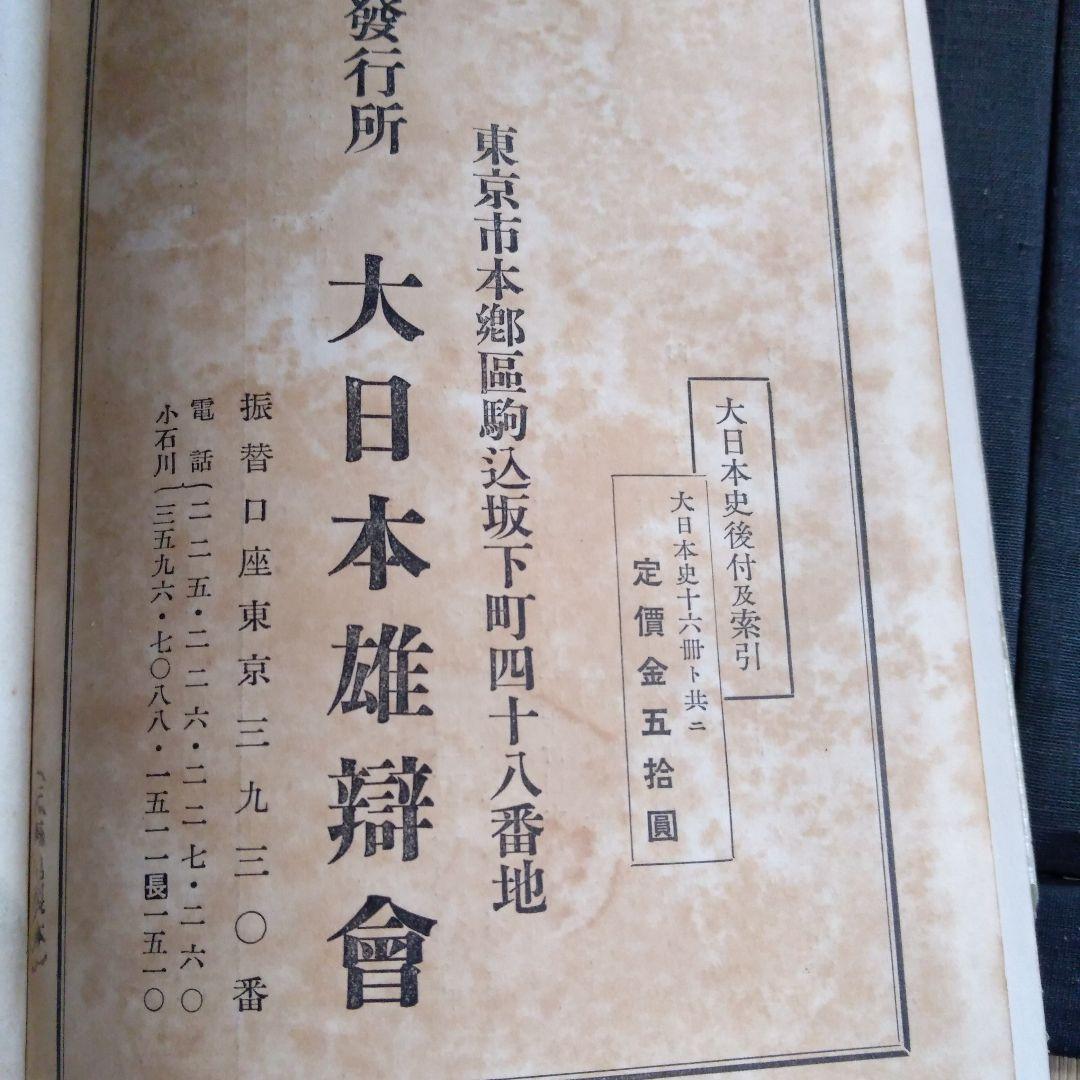 大日本史後付及索引
大日本史十六冊ト共ニ
定價金五拾圓
東京市本鄕區駒込坂下町四十八番地
發行所 大日本雄辯會
振替口座東京三九三〇番
電話 二二五・二二六・二二七・二六〇
小石川 三五九六・七〇八八・一五一一長一五一〇